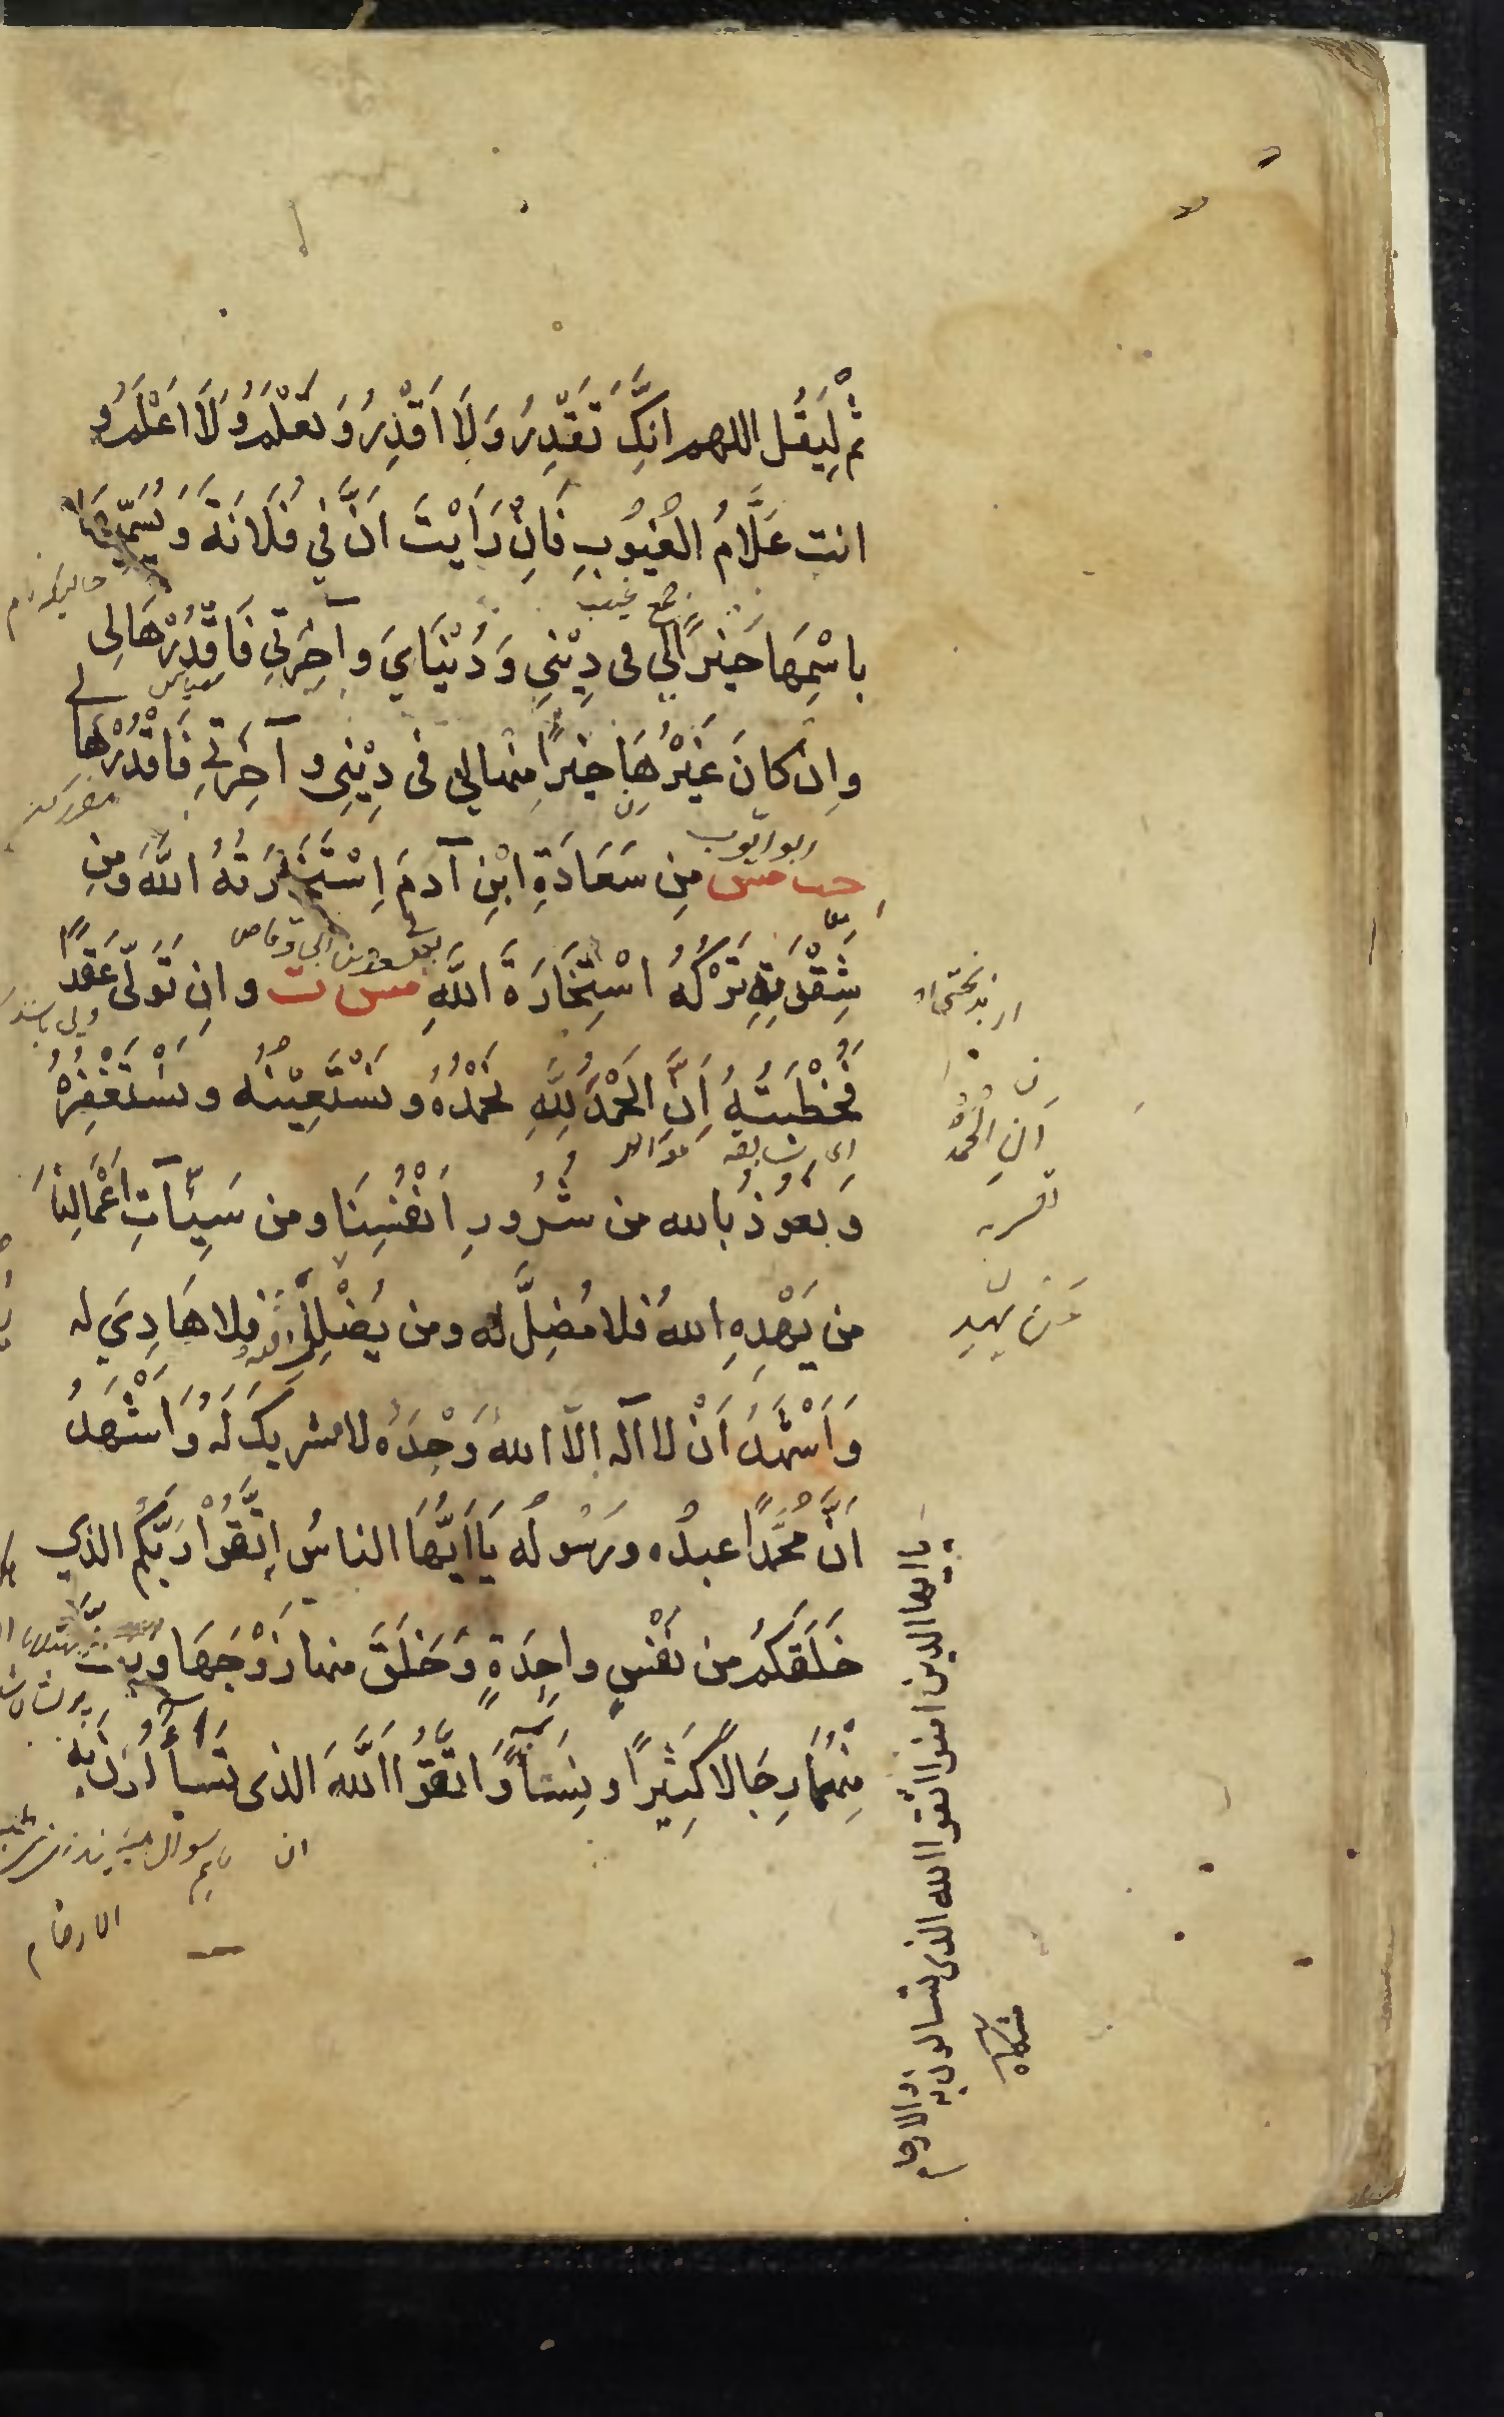 ثُمَّ لِيَقُلْ اللهم اِنَّكَ تَقْدِرُ وَلَا اَقْدِرُ وَتَعْلَمُ وَلَا اَعْلَمُ و
انت عَلَّامُ الْغُيُوْبِ فَاِنْ رَاَيْتَ اَنَّ فِي فُلَانَةَ وَيُسَمِّيْهَا
جمع غيب
بِاسْمِهَا خَيْرًا لِي فى دِيْنِي وَدُنْيَايَ وآخِرَتِي فَاقْدُرْهَا لِى
وِان كانَ غَيْرُهَا خيرًا مِنها لِي فى دِيْنِي و آخِرَتِي فَاقْدُرْهَا
لى
ابو ايوب
حب مس مِن سَعَادَةِ ابْنِ آدمَ اِسْتِخَارَتُهُ اللّٰهَ ومِن
سعد بن ابى وقاص
شِقْوَتِهِ تَرْكُهُ اسْتِخَارَةَ اللّٰهِ مس ت وانِ تَوَلّٰى عَقْدًا
فَخُطْبَتُهُ اَنِ الْحَمْدُ لِلّٰهِ نَحْمَدُهُ ونَسْتَعِيْنُه ونَسْتَغْفِرُهُ
وَنعُوْذُ بالله من شُرُورِ اَنْفُسِنَا ومن سَيِّئَآتِ اَعْمَالِنَا
من يَهْدِهِ اللهُ فلا مُضِلَّ لَه ومن يُضْلِلْ فلا هَادِيَ له
وَاَشْهَدُ اَنْ لا اله اِلّا اللهُ وَحْدَهُ لا شريكَ لَهُ وَاَشْهَدُ
اَنَّ مُحَمَّدًا عبدُه ورَسُولُه يَا اَيُّهَا الناسُ اِتَّقُوْا رَبَّكُمُ الذي
خَلَقَكُمْ من نَفْسٍ واحِدَةٍ وَخَلَقَ منها زَوْجَهَا وَبَثَّ
مِنْهُمَا رِجَالًا كَثِيْرًا ونِسَآءً وَاتَّقُوا اللّٰهَ الذى تَسَاءَلُوْنَ بِه
الارحام
اَنِ الْحَمْدُ
مَن يهد
يا ايها الذين امنوا اتقوا الله الذى تسالون به والارحام
مشكاة